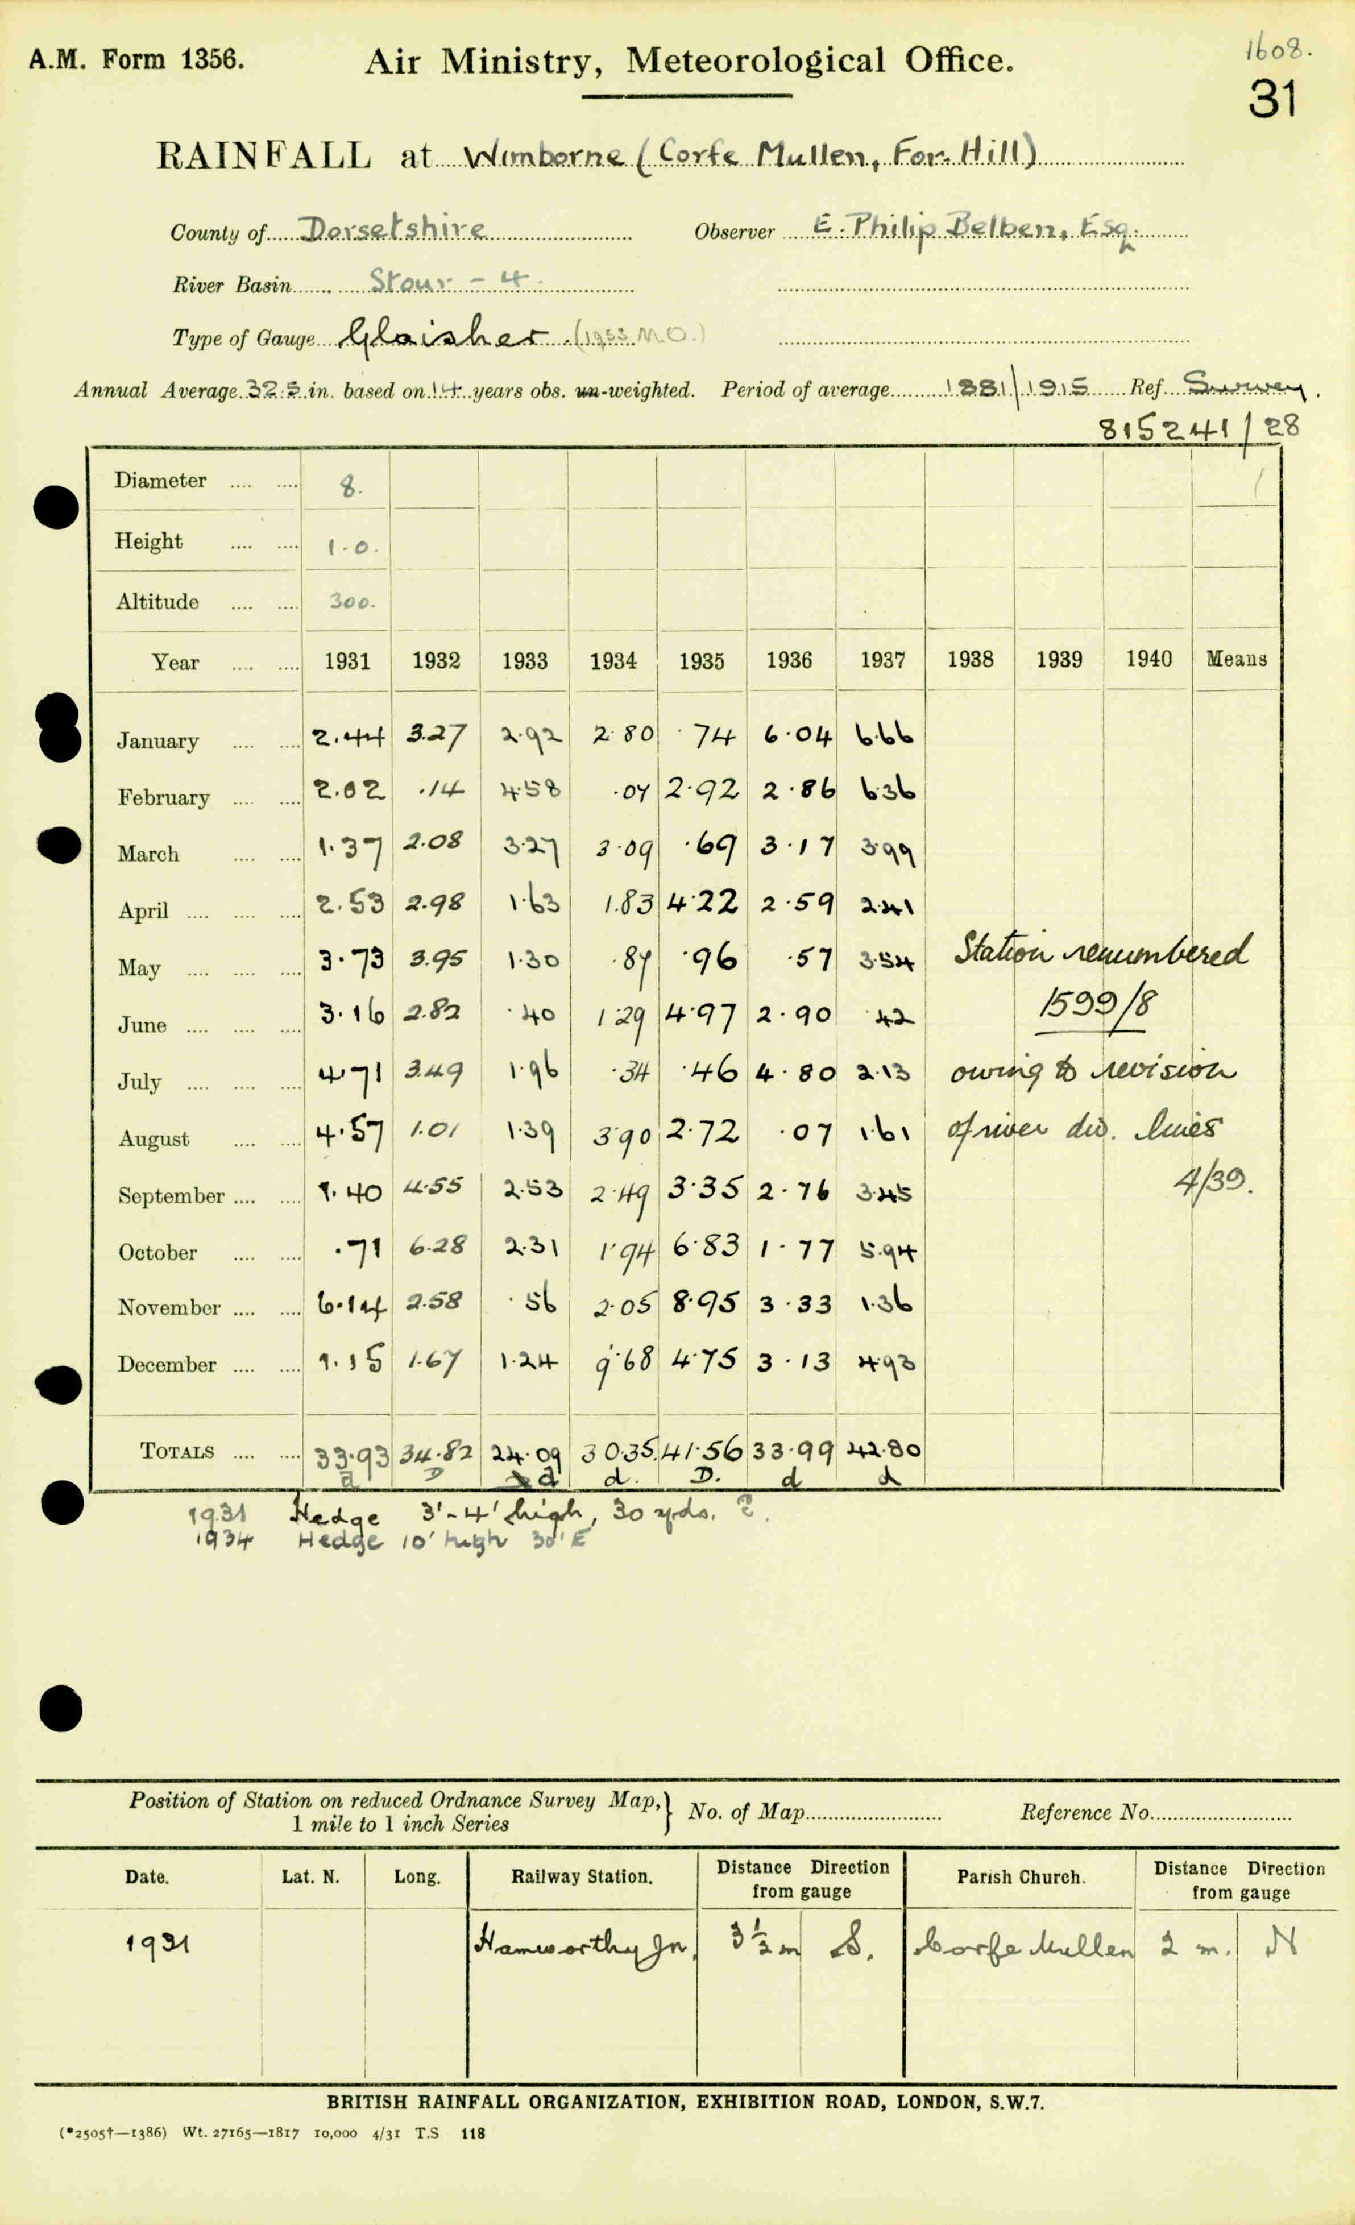 A.M. Form 1356. Air Ministry, Meteorological Office. 1608.
31
RAINFALL at Wimborne (Corfe Mullen, Fox Hill)
County of Dorsetshire Observer E. Philip Belben, Esq.
River Basin Stour - 4.
Type of Gauge Glaisher (1953 M.O.)
Annual Average 32.5 in. based on 14 years obs. un-weighted. Period of average 1881/1915 Ref. Survey.
815241/28
Diameter 8.
Height 1.0.
Altitude 300.
Year 1931 1932 1933 1934 1935 1936 1937 1938 1939 1940 Means
January 2.44 3.27 2.92 2.80 .74 6.04 6.66
February 2.02 .14 4.58 .07 2.92 2.86 6.36
March 1.37 2.08 3.27 3.09 .69 3.17 3.99
April 2.53 2.98 1.63 1.83 4.22 2.59 2.41
May 3.73 3.95 1.30 .87 .96 .57 3.54 Station renumbered
June 3.16 2.82 .40 1.29 4.97 2.90 .42 1599/8
July 4.71 3.49 1.96 .34 .46 4.80 2.13 owing to revision
August 4.57 1.01 1.39 3.90 2.72 .07 1.61 of river div. lines
September 1.40 4.55 2.53 2.49 3.35 2.76 3.45 4/39.
October .71 6.28 2.31 1.94 6.83 1.77 5.94
November 6.14 2.58 .56 2.05 8.95 3.33 1.36
December 1.15 1.67 1.24 9.68 4.75 3.13 4.93
TOTALS 33.93 34.82 24.09 30.35 41.56 33.99 42.80
d D d d. D. d d
1931 Hedge 3'-4' high, 30 yds. E.
1934 Hedge 10' high 30' E
Position of Station on reduced Ordnance Survey Map, No. of Map Reference No.
1 mile to 1 inch Series
Date. Lat. N. Long. Railway Station. Distance Direction from gauge Parish Church. Distance Direction from gauge
1931 Hamworthy Jn. 3½ m S. Corfe Mullen 2 m. N
BRITISH RAINFALL ORGANIZATION, EXHIBITION ROAD, LONDON, S.W.7.
(*2505†—1386) Wt. 27165—1817 10,000 4/31 T.S 118